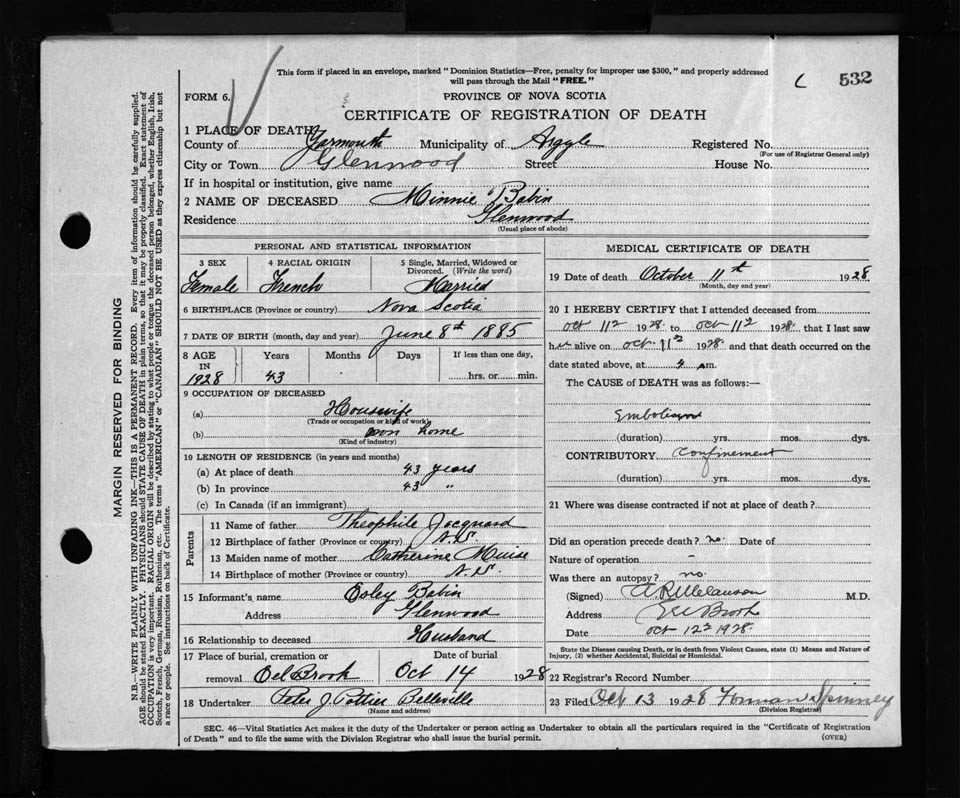 This form if placed in an envelope, marked "Dominion Statistics—Free, penalty for improper use $300," and properly addressed
will pass through the Mail "FREE."
532
FORM 6.
PROVINCE OF NOVA SCOTIA
CERTIFICATE OF REGISTRATION OF DEATH
1 PLACE OF DEATH
County of Yarmouth Municipality of Argyle Registered No.
(For use of Registrar General only)
City or Town Glenwood Street House No.
If in hospital or institution, give name
2 NAME OF DECEASED Minnie Babin
Residence Glenwood
(Usual place of abode)
PERSONAL AND STATISTICAL INFORMATION
3 SEX 4 RACIAL ORIGIN 5 Single, Married, Widowed or
Divorced. (Write the word)
Female French Married
6 BIRTHPLACE (Province or country) Nova Scotia
7 DATE OF BIRTH (month, day and year) June 8th 1885
8 AGE Years Months Days If less than one day,
IN
1928 43 hrs. or min.
9 OCCUPATION OF DECEASED
(a) Housewife
(Trade or occupation or kind of work)
(b) own home
(Kind of industry)
10 LENGTH OF RESIDENCE (in years and months)
(a) At place of death 43 years
(b) In province 43 "
(c) In Canada (if an immigrant)
Parents
11 Name of father Theophile Jacquard
12 Birthplace of father (Province or country) N.S.
13 Maiden name of mother Catherine Muise
14 Birthplace of mother (Province or country) N.S.
15 Informant's name Esley Babin
Address Glenwood
16 Relationship to deceased Husband
17 Place of burial, cremation or Date of burial
removal Eel Brook Oct 14 1928
18 Undertaker Peter J Pottier Belleville
(Name and address)
MEDICAL CERTIFICATE OF DEATH
19 Date of death October 11th 1928
(Month, day and year)
20 I HEREBY CERTIFY that I attended deceased from
Oct 11th 1928 to Oct 11th 1928, that I last saw
her alive on Oct 11th 1928 and that death occurred on the
date stated above, at 4 m.
The CAUSE of DEATH was as follows:—
Embolism
(duration) yrs. mos. dys.
CONTRIBUTORY. Confinement
(duration) yrs. mos. dys.
21 Where was disease contracted if not at place of death?
Did an operation precede death? no Date of
Nature of operation -
Was there an autopsy? no
(Signed) A R Melanson M.D.
Address Eel Brook
Date Oct 12th 1928.
State the Disease causing Death, or in death from Violent Causes, state (1) Means and Nature of
Injury, (2) whether Accidental, Suicidal or Homicidal.
22 Registrar's Record Number
23 Filed Oct 13 1928
(Division Registrar)
SEC. 46—Vital Statistics Act makes it the duty of the Undertaker or person acting as Undertaker to obtain all the particulars required in the "Certificate of Registration
of Death" and to file the same with the Division Registrar who shall issue the burial permit. (OVER)
MARGIN RESERVED FOR BINDING
N.B.—WRITE PLAINLY WITH UNFADING INK—THIS IS A PERMANENT RECORD. Every item of information should be carefully supplied.
AGE should be stated EXACTLY. PHYSICIANS should STATE CAUSE OF DEATH in plain terms, so that it may be properly classified. Exact statement of
OCCUPATION is very important. RACIAL ORIGIN will be described by stating to what people or tongue the deceased person belonged, whether English, Irish,
Scotch, French, German, Russian, Ruthenian, etc. The terms "AMERICAN" or "CANADIAN" SHOULD NOT BE USED as they express citizenship but not
a race or people. See instructions on back of Certificate.